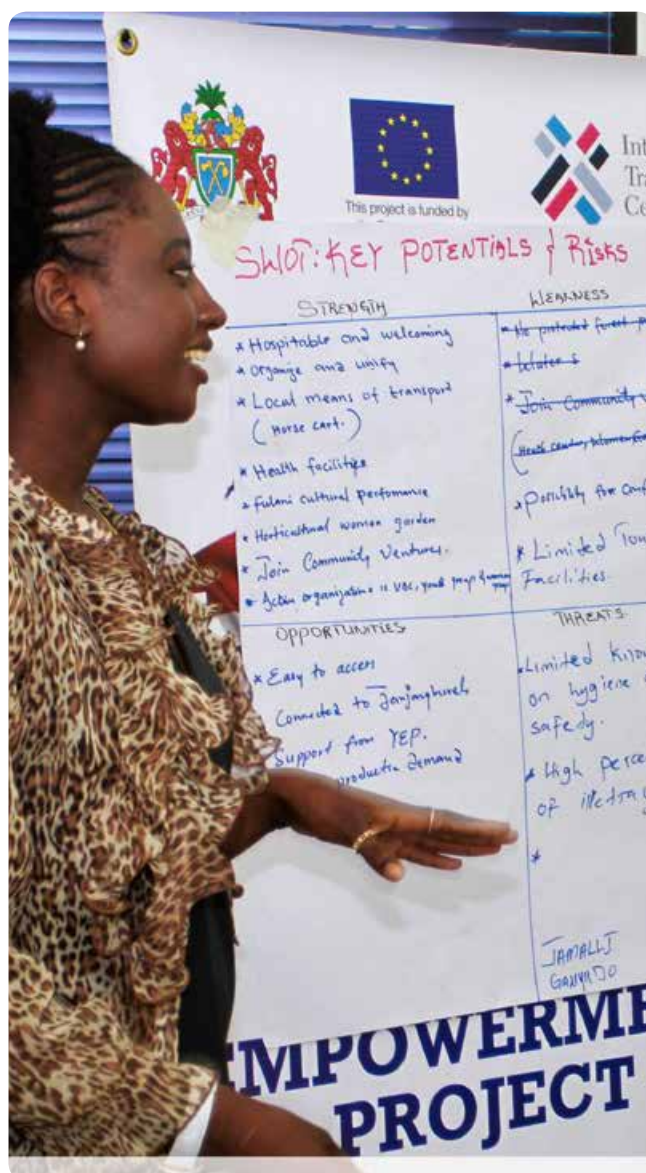 This project is funded by
Int
Tra
Ce
SWOT: KEY POTENTIALS & RISKS
STRENGTH
* Hospitable and welcoming
* Organize and unify
* Local means of transport
(Horse cart.)
* Health facilities
* Fulani cultural performance
* Horticultural women garden
* Join Community Ventures.
* Active organizations is VDC, youth
WEAKNESS
* No protected forest
* Water s
* Join Community
(Health center,
* Possibility for Conf
* Limited Tou
Facilities.
OPPORTUNITIES
* Easy to access
Connected to Janjanghureh
Support from YEP.
production demand
THREATS
* Limited Know
on hygiene
safedy.
* High perce
of
*
JAMALLI
GANYADO
EMPOWERME
PROJECT